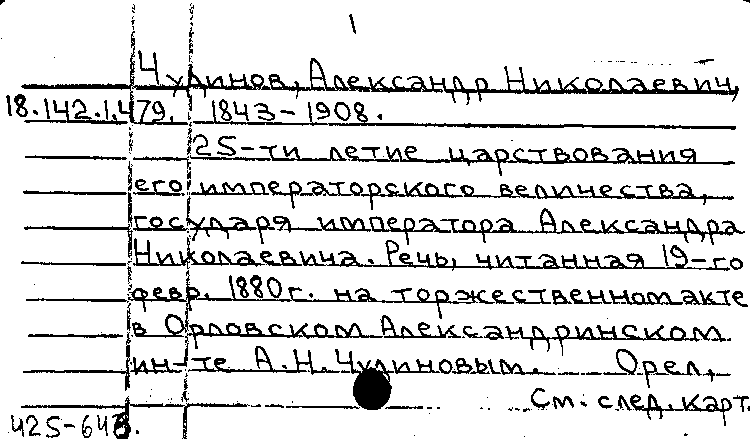 1
Чудинов, Александр Николаевич,
18.142.1.479. 1843-1908.
25-ти летие царствования
его императорского величества,
государя императора Александра
Николаевича. Речь, читанная 19-го
февр. 1880 г. на торжественном акте
в Орловском Александринском
ин-те А.Н. Чудиновым. Орел,
См. след. карт.